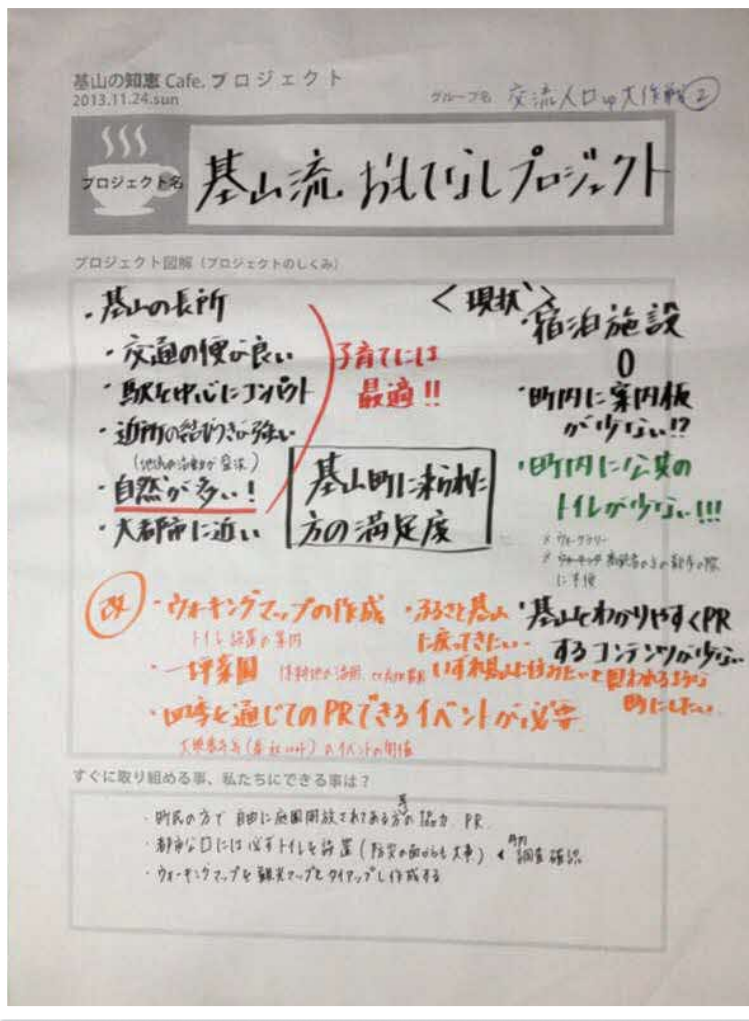 基山の知恵 Cafe. プロジェクト
2013.11.24.sun
グループ名 交流人口up大作戦②
プロジェクト名
基山流 おもてなしプロジェクト
プロジェクト図解（プロジェクトのしくみ）
・基山の長所
・交通の便が良い
・駅を中心にコンパクト
・近所の結びつきが強い
・自然が多い！
・大都市に近い
子育てには
最適!!
基山町に来られた
方の満足度
＜現状＞
・宿泊施設
0
・町内に案内板
が少ない!?
・町内に公共の
トイレが少ない!!!
※ ウォークラリー
に不便
・基山をわかりやすくPR
するコンテンツが少ない
改
・ウォーキングマップの作成
トイレ設置の案内
・一坪菜園
・四季を通じてのPRできるイベントが必要
のイベントの開催
・ふるさと基山
に戻ってきたい
いずれ基山に住みたいと思われるような
町にしたい
すぐに取り組める事、私たちにできる事は？
・町民の方で 自由に庭園開放されてある方の協力 PR
・都市公園には必ずトイレを設置（防災の面からも大事） 調査確認
・ウォーキングマップを観光マップとタイアップし作成する